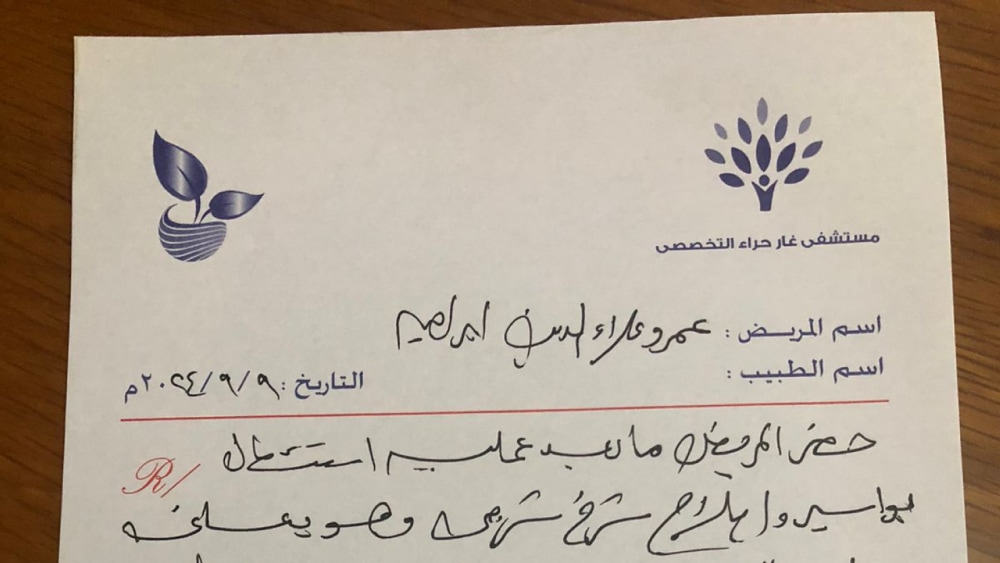 مستشفى غار حراء التخصصى
اسم المريض : عمرو علاء الدين ابراهيم
اسم الطبيب :
التاريخ : ٢٠٢٤/٩/٩م
حضر المريض ما بعد عمليه استئصال
R/
بواسير واصلاح شرخ شرجى وهو يعانى